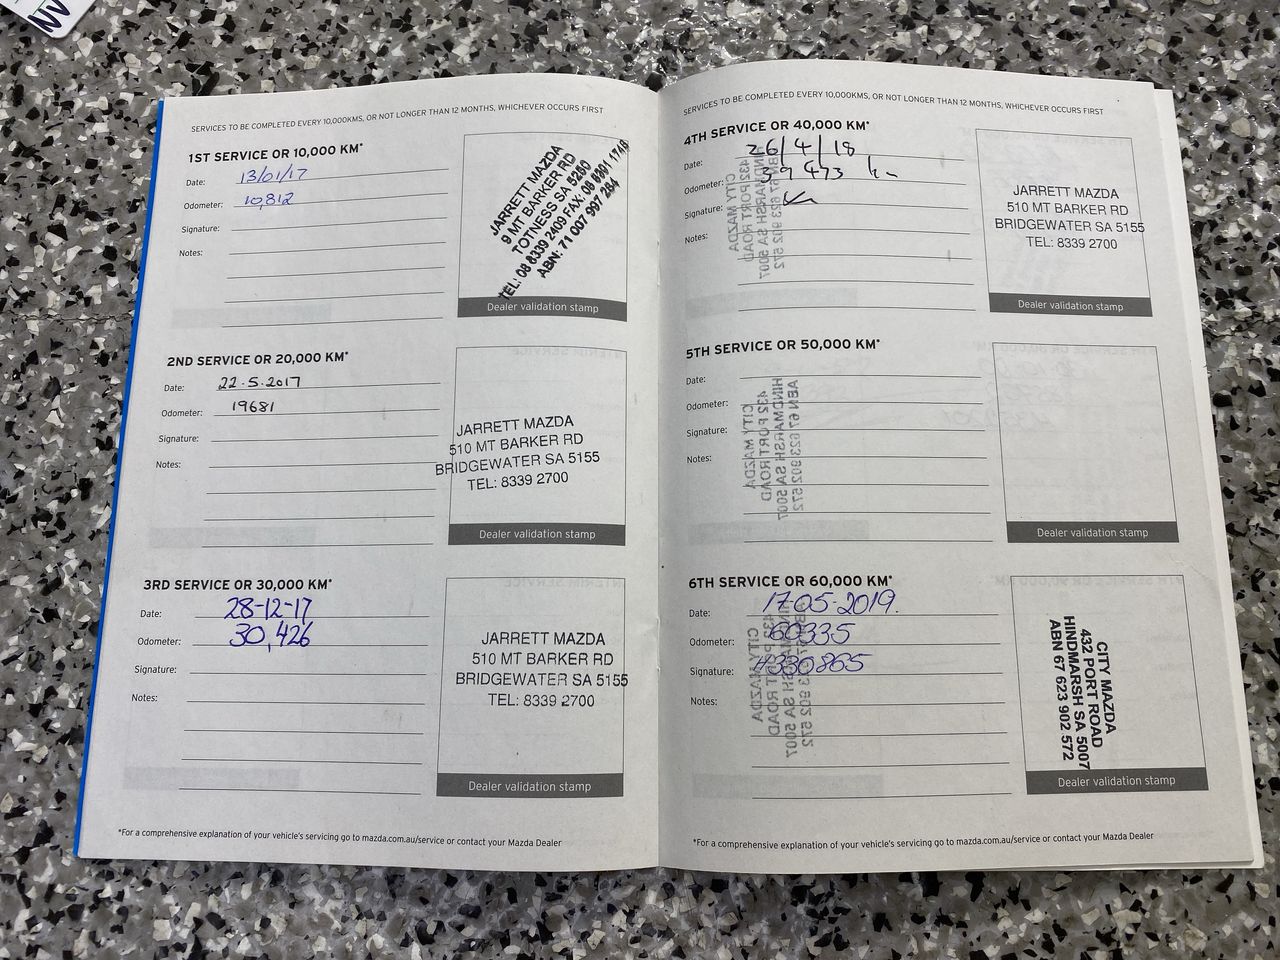 SERVICES TO BE COMPLETED EVERY 10,000KMS, OR NOT LONGER THAN 12 MONTHS, WHICHEVER OCCURS FIRST
1ST SERVICE OR 10,000 KM*
Date: 13/01/17
Odometer: 10,812
Signature:
Notes:
JARRETT MAZDA
9 MT BARKER RD
TOTNESS SA 5250
TEL: 08 8339 2409 FAX: 08 8391 1748
ABN: 71 007 997 284
Dealer validation stamp
2ND SERVICE OR 20,000 KM*
Date: 22.5.2017
Odometer: 19681
Signature:
Notes:
JARRETT MAZDA
510 MT BARKER RD
BRIDGEWATER SA 5155
TEL: 8339 2700
Dealer validation stamp
3RD SERVICE OR 30,000 KM*
Date: 28-12-17
Odometer: 30,426
Signature:
Notes:
JARRETT MAZDA
510 MT BARKER RD
BRIDGEWATER SA 5155
TEL: 8339 2700
Dealer validation stamp
*For a comprehensive explanation of your vehicle's servicing go to mazda.com.au/service or contact your Mazda Dealer
SERVICES TO BE COMPLETED EVERY 10,000KMS, OR NOT LONGER THAN 12 MONTHS, WHICHEVER OCCURS FIRST
4TH SERVICE OR 40,000 KM*
Date: 26/4/18
Odometer: 39 473 km
Signature:
Notes:
JARRETT MAZDA
510 MT BARKER RD
BRIDGEWATER SA 5155
TEL: 8339 2700
Dealer validation stamp
5TH SERVICE OR 50,000 KM*
Date:
Odometer:
Signature:
Notes:
Dealer validation stamp
6TH SERVICE OR 60,000 KM*
Date: 17-05-2019.
Odometer: 60335
Signature: #330865
Notes:
CITY MAZDA
432 PORT ROAD
HINDMARSH SA 5007
ABN 67 623 902 572
Dealer validation stamp
*For a comprehensive explanation of your vehicle's servicing go to mazda.com.au/service or contact your Mazda Dealer